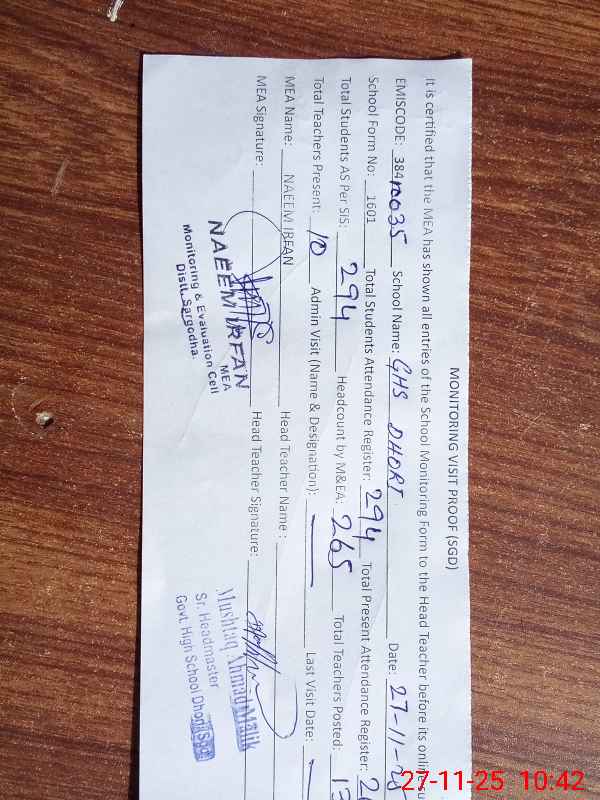 MONITORING VISIT PROOF (SGD)
It is certified that the MEA has shown all entries of the School Monitoring Form to the Head Teacher before its online su
EMISCODE: 38410035 School Name: GHS DHORI Date: 27-11-25
School Form No: 1601 Total Students Attendance Register: 294 Total Present Attendance Register: 2
Total Students AS Per SIS: 294 Headcount by M&EA: 265 Total Teachers Posted: 13
Total Teachers Present: 10 Admin Visit (Name & Designation): — Last Visit Date: —
MEA Name: NAEEM IRFAN Head Teacher Name :
MEA Signature: Head Teacher Signature:
NAEEM IRFAN
MEA
Monitoring & Evaluation Cell
Distt. Sargodha.
Mushtaq Ahmad Malik
Sr. Headmaster
Govt. High School Dhori
27-11-25 10:42